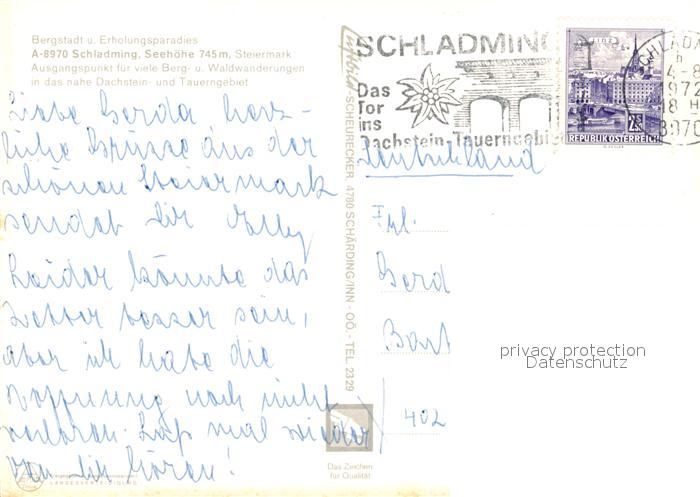 Bergstadt u. Erholungsparadies
A-8970 Schladming, Seehöhe 745 m, Steiermark
Ausgangspunkt für viele Berg- u. Waldwanderungen
in das nahe Dachstein- und Tauerngebiet
Liebe Gerda herz-
liche Grüsse aus der
schönen Steiermark
sendet Dir Elly
Leider könnte das
Wetter besser sein,
aber ich habe die
Hoffnung noch nicht
verloren. Laß mal wieder
von Dir hören!
LANDESVERTEIDIGUNG
Luftbild SCHEURECKER, 4780 SCHÄRDING/INN - OÖ. - TEL. 2329
Das Zeichen
für Qualität
SCHLADMING
Das
Tor
ins
Dachstein-Tauerngebiet
LINZ
2S
REPUBLIK ÖSTERREICH
SCHLADM
4-8
1972
18
8970
Deutschland
Frl.
Gerd
Bart
402
privacy protection
Datenschutz